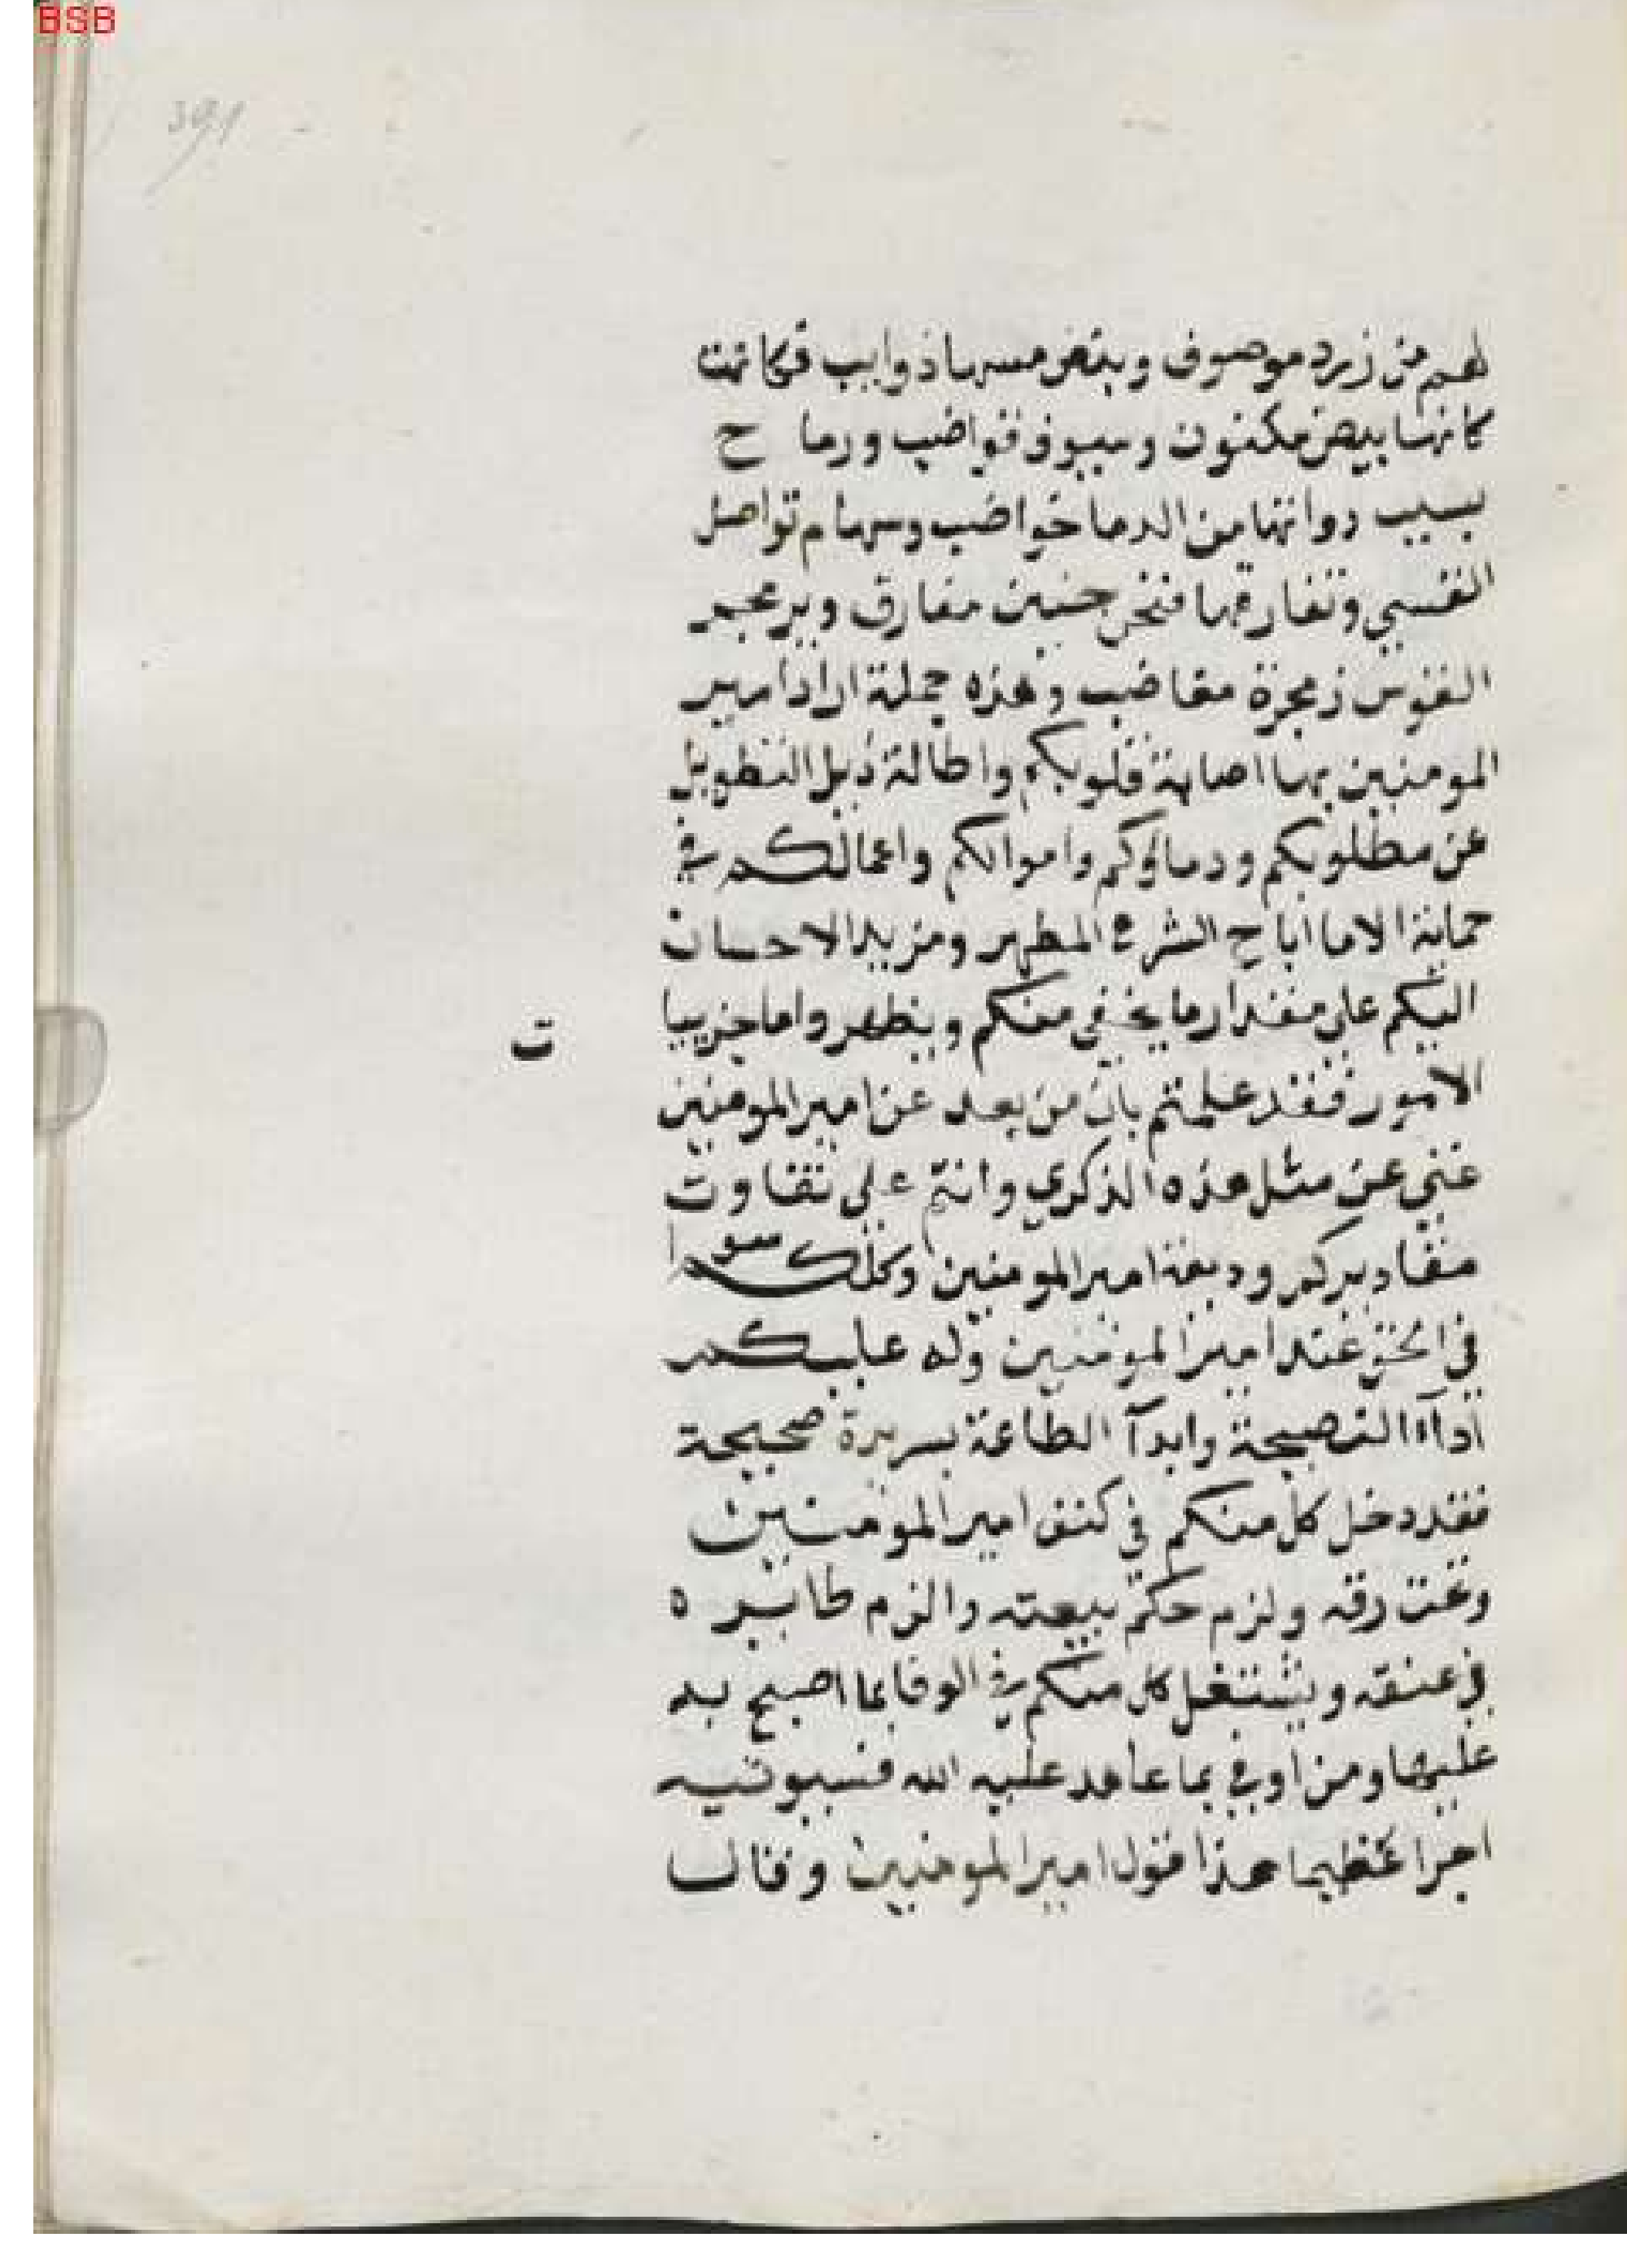 BSB
391
لهم من زرد موصوف وبيض مسها ذوايب فكانت
كانها بيض مكنون وسيوف قواضب ورما ح
بسبب دوانها من الدما خواضب وسهام تواصل
القسي وتفارقها فتحن حنين مفارق وبزمجر
القوس زمجرة مغاضب وهذه جملة اراد امير
المومنين بها اصابة قلوبكم واطالة ذيل التطويل
عن مطلوبكم ودماوكم واموالكم واعمالكم في
حماية الا ما اباح الشرع المطهر ومزيد الاحسان
اليكم على مقدار ما يخفى منكم ويظهر واما جزييا
ت
الامور فقد علمتم بان من بعد عن امير المومنين
غني عن مثل هذه الذكري وانتم على تفاوت
مقاديركم وديعة امير المومنين وكلكم سوا
في الحق عند امير المومنين وله عليكم
اداء النصيحة وابدآ الطاعة بسريرة صحيحة
فقد دخل كل منكم في كنف امير المومنين
وتحت رقه ولزم حكم بيعته والزم طايره
في عنقه ويشتغل كل منكم في الوفا بما اصبح به
عليها ومن اوفى بما عاهد عليه الله فسيوتيه
اجرا عظيما هذا قول امير المومنين وقال